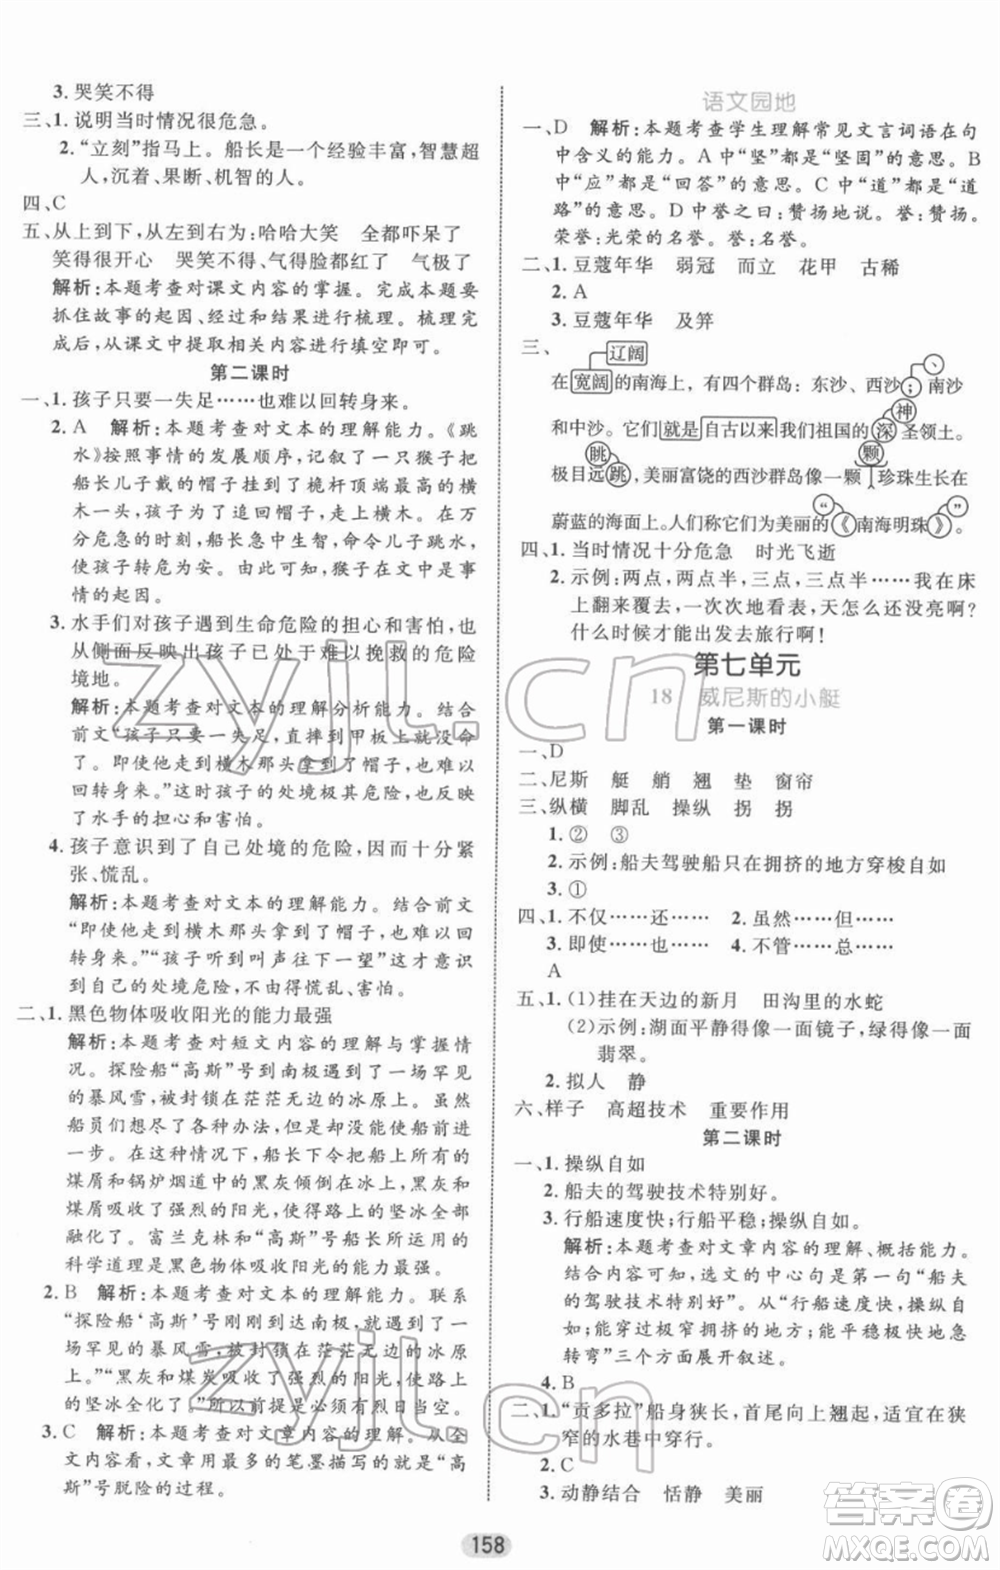 3. 哭笑不得
三、1. 说明当时情况很危急。
2. “立刻”指马上。船长是一个经验丰富,智慧超
人,沉着、果断、机智的人。
四、C
五、从上到下,从左到右为:哈哈大笑 全都吓呆了
笑得很开心 哭笑不得、气得脸都红了 气极了
解析:本题考查对课文内容的掌握。完成本题要
抓住故事的起因、经过和结果进行梳理。梳理完
成后,从课文中提取相关内容填空即可。
第二课时
一、1. 孩子只要一失足……也难以回转身来。
2. A 解析:本题考查对文本的理解能力。《跳
水》按照事情的发展顺序,记叙了一只猴子把
船长儿子戴的帽子挂了桅杆顶端最高的横
木一头,孩子为了追回帽子,走上横木。在万
分危急的时刻,船长急中生智,命令儿子跳水,
使孩子转危为安。因此,猴子在文中是事
情的起因。
3. 水手们对孩子遇到生命危险的担心和害怕,也
从侧面反映出孩子已处于难以挽救的危险
境地。
解析:本题考查对文本的理解分析能力。结合
前文“孩子只要一失足,直摔到甲板上就没命
了。即使他走到横木那头拿到了帽子,也难以
回转身来。”这时孩子的处境极其危险,表现出
了水手的担心和害怕。
4. 孩子意识到了自己处境的危险,因此十分紧
张、慌乱。
解析:本题考查对文本的理解能力。结合前文
“即使他走到横木那头拿到了帽子,也难以回
转身来。”“孩子听到叫声往下一望”,这才意识
到自己的处境危险,因此显得慌乱、紧张。
二、1. 黑色物体吸收阳光的能力最强
解析:本题考查对短文内容的理解与掌握情
况。探险船“高斯”号到南极遇到了一场罕见
的暴风雪,被封锁在茫茫无边的冰原上。虽然
船员们想尽了各种办法,但都无济于事。在
这种情况下,船长忽然想到富兰克林利用
煤屑和锅炉烟道中清理出来的黑灰铺在冰上,
煤屑吸收了强烈的阳光,船上的坚冰全部
融化了。富兰克林和“高斯”号船长所运用的
科学道理是黑色物体吸收阳光的能力最强。
2. B 解析:本题考查对文本的理解能力。联系
“探险船‘高斯’号刚刚到达南极,就遇到了一
场罕见的暴风雪,被封锁在茫茫无边的冰原
上。”“黑灰和煤炭吸收了强烈的阳光,使船上
的坚冰全化了。”可知当时是烈日当空。
3. C 解析:本题考查对文本的理解。从全文
看,文章用最多的笔墨描写的是“高
斯”号脱险的过程。
语文园地
一、D 解析:本题考查学生理解常见文言词语在句
中含义的能力。A 中“坚”都是“坚固”的意思。B
中“应”都是“回答”的意思。C 中“道”都是“道
路”的意思。D 中誉之曰:赞扬地说。誉:赞扬。
荣誉:光荣的名誉。誉:名誉。
二、1. 豆蔻年华 弱冠 而立 花甲 古稀
2. A
3. 豆蔻年华 及笄
三、 辽阔
在宽阔的南海上,有四个群岛:东沙、西沙;南沙
神
和中沙。它们就是自古以来我们祖国的深圣领土。
眺 颗
极目远跳,美丽富饶的西沙群岛像一颗珍珠生长在
“ ”
蔚蓝的海面上。人们称它们为美丽的《南海明珠》。
四、1. 当时情况十分危急 时光飞逝
2. 示例:两点,两点半,三点,三点半……我在床
上翻来覆去,一次次地看表,天怎么还没亮啊?
什么时候才能出发去旅行啊!
第七单元
18 威尼斯的小艇
第一课时
一、D
二、尼斯 艇 艄 翘 垫 窗帘
三、纵横 脚乱 操纵 拐 拐
1. ② ③
2. 示例:船夫驾驶船只在拥挤的地方穿梭自如
3. ①
四、1. 不仅……还…… 2. 虽然……但……
3. 即使……也…… 4. 不管……总……
A
五、1. (1)挂在天边的新月 田沟里的水蛇
(2)示例:湖面平静得像一面镜子,绿得像一面
翡翠。
2. 拟人 静
六、样子 高超技术 重要作用
第二课时
一、1. 操纵自如
2. 船夫的驾驶技术特别好。
3. 行船速度快;行船平稳;操纵自如。
解析:本题考查对文章内容的理解、概括能力。
结合内容可知,选文的中心句是第一句“船夫
的驾驶技术特别好”。从“行船速度快,操纵自
如;能穿过极窄拥挤的地方;能平稳极快地急
转弯”三个方面展开叙述。
4. B
二、1. “贡多拉”船身狭长,首尾向上翘起,适宜在狭
窄的水巷中穿行。
2. C
3. 动静结合 恬静 美丽
158
zyjl.cn
zyjl.cn
答案圈
MXQE.COM